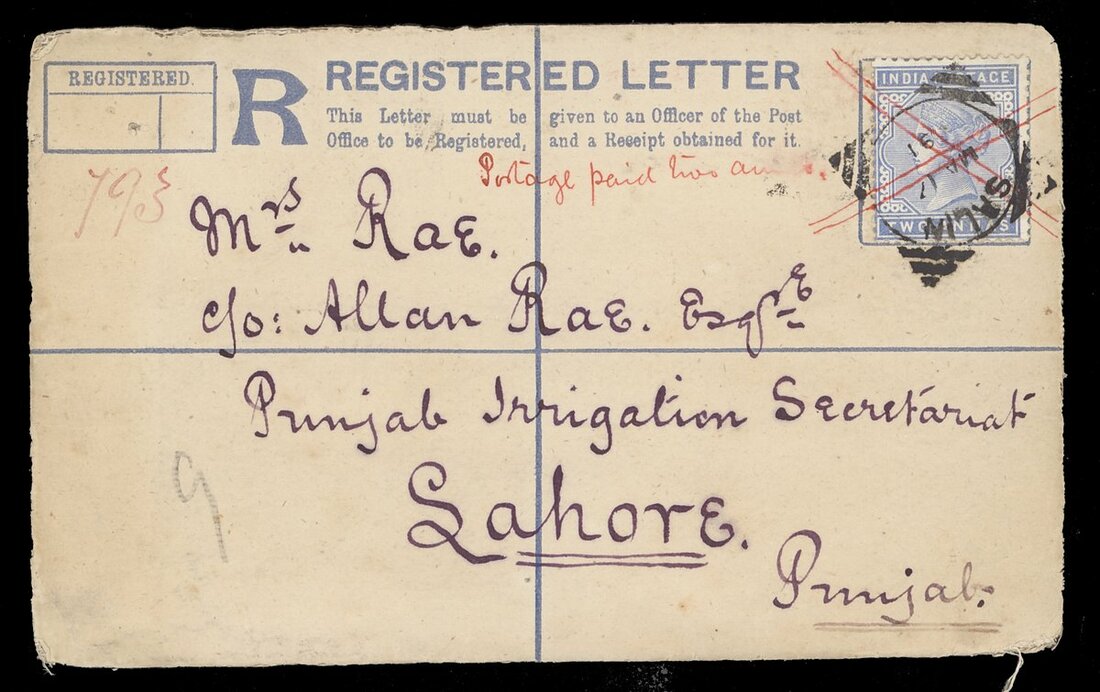 REGISTERED.
R
REGISTERED LETTER
This Letter must be given to an Officer of the Post
Office to be Registered, and a Receipt obtained for it.
INDIA POSTAGE
TWO ANNAS
SALIN
MA
97
Postage paid two annas.
793
Mrs Rae.
c/o: Allan Rae. Esqre
Punjab Irrigation Secretariat
9
Lahore.
Punjab.